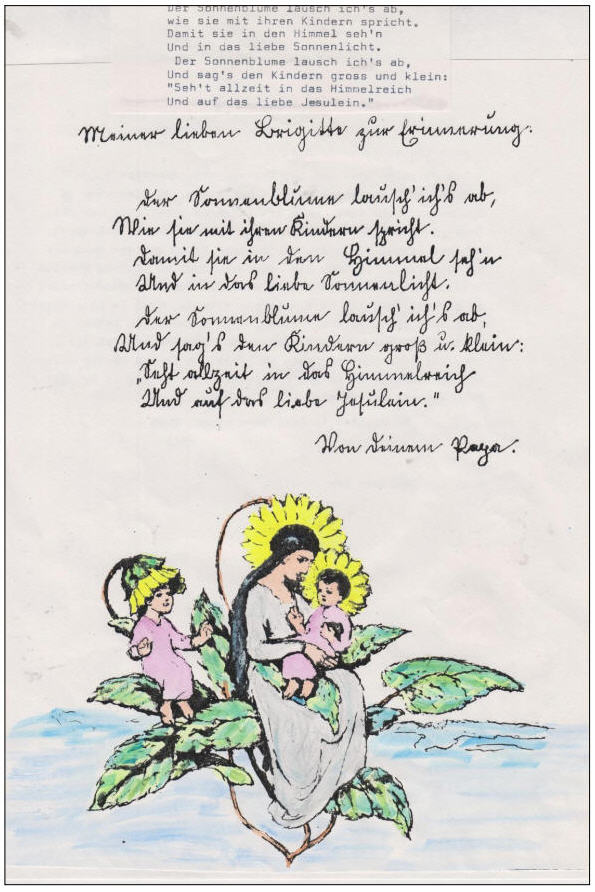 Der Sonnenblume lausch ich's ab,
wie sie mit ihren Kindern spricht.
Damit sie in den Himmel seh'n
Und in das liebe Sonnenlicht.
Der Sonnenblume lausch ich's ab,
Und sag's den Kindern gross und klein:
"Seh't allzeit in das Himmelreich
Und auf das liebe Jesulein."
Meiner lieben Brigitte zur Erinnerung.
Der Sonnenblume lausch' ich's ab,
Wie sie mit ihren Kindern spricht.
Damit sie in den Himmel seh'n
Und in das liebe Sonnenlicht.
Der Sonnenblume lausch' ich's ab,
Und sag's den Kindern groß u. klein:
„Seht allzeit in das Himmelreich
Und auf das liebe Jesulein."
Von Deinem Papa.